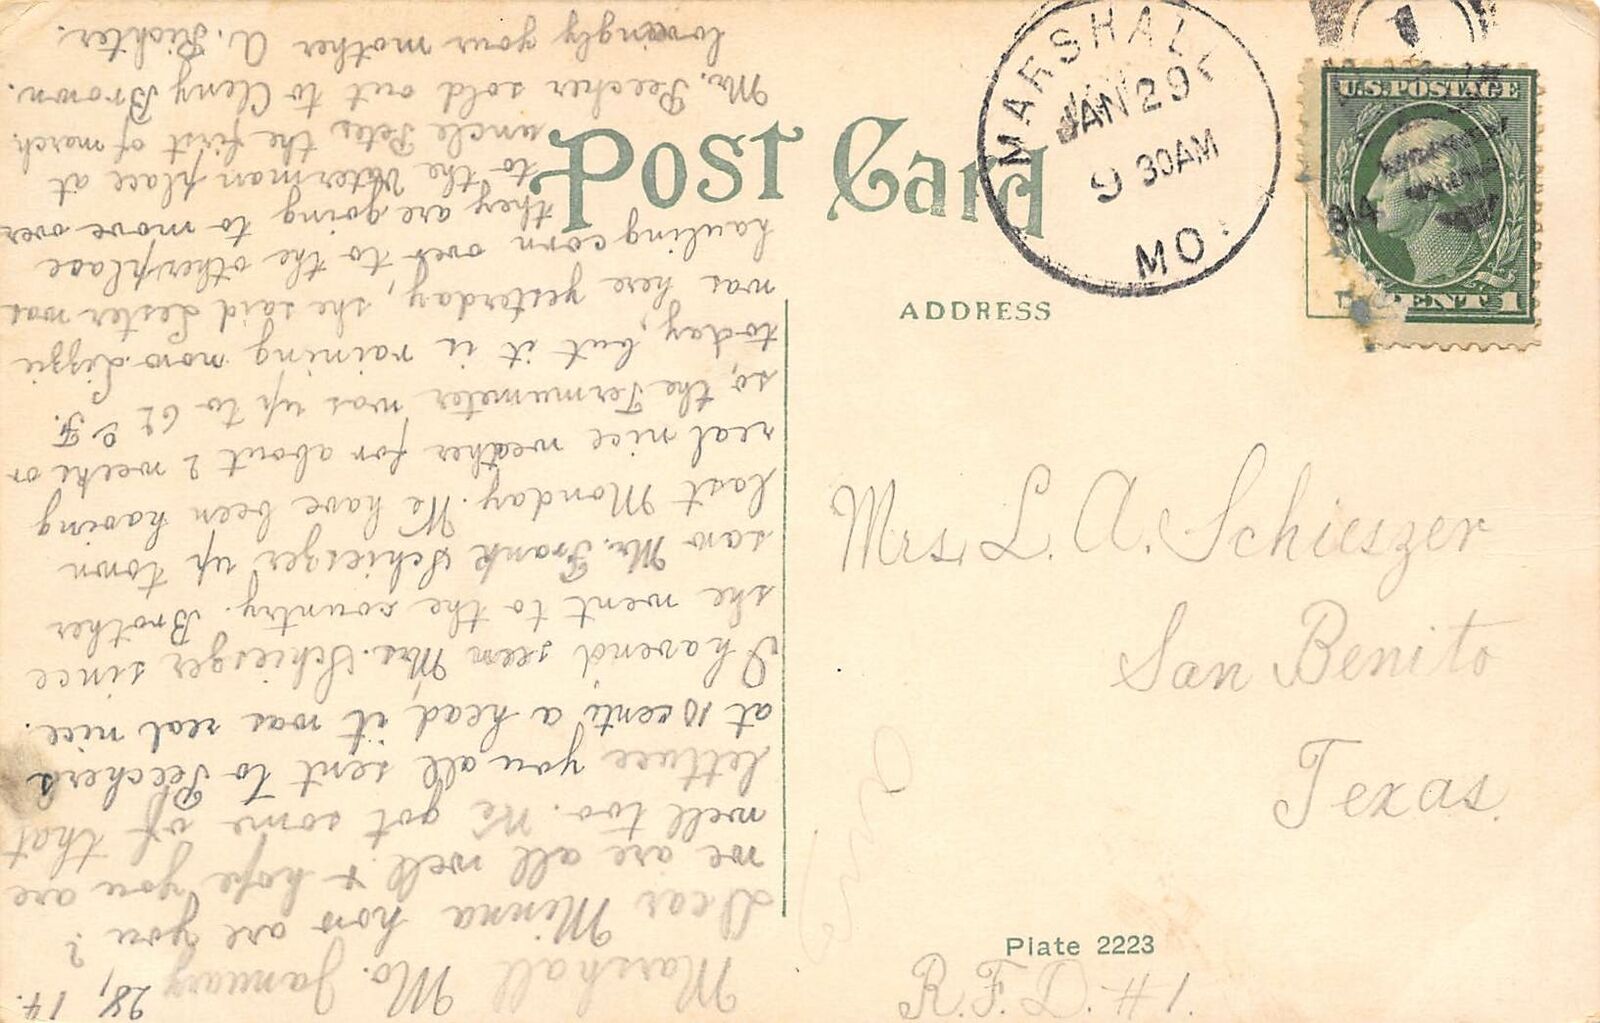 Post Card
MARSHALL
JAN 29
9 30AM
MO.
1
U.S. POSTAGE
914
CENT 1
ADDRESS
Mrs. L. A. Schieszer
San Benito
Texas.
Plate 2223
R.F.D. #1.
Marshall Mo. January 28, 14.
Dear Minna how are you?
we are all well & hope you are
well too. We got some of that
lettuce you all sent to Peechers
at 10 cents a head, it was real nice.
I havend seem Mrs. Schieszer since
she went to the country. Brother
saw Mr. Frank Schieszer up town
last Monday. We have been having
real nice weather for about 2 weeks or
so, the Termumeter was up to 62 F.
today, but it is raining now. Lizzie
was here yesterday, she said Lester was
hauling corn over to the other place
they are going to move over
to the Waterman place at
uncle Petes the first of march.
Mr. Peecher sold out to Cleny Brown.
lovingly your mother A. Richter.